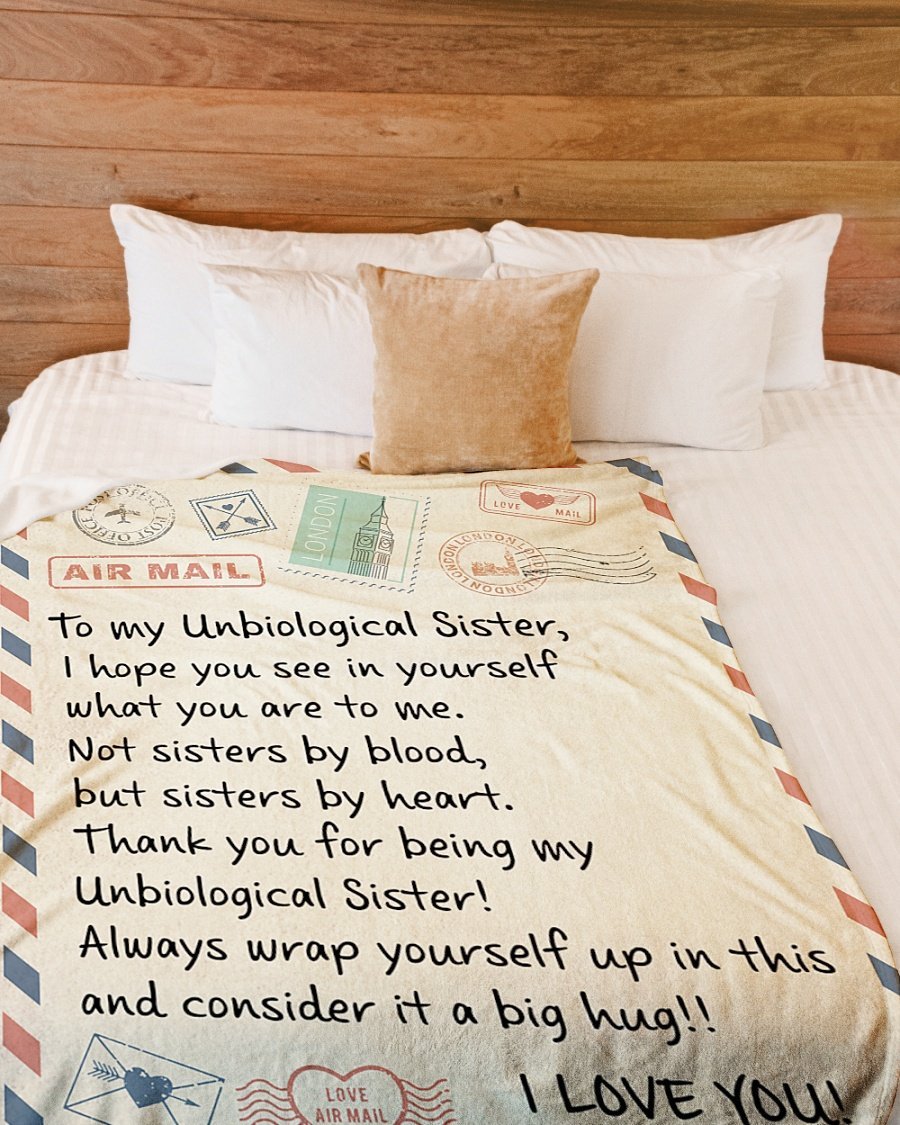 POST OFFICE POST OFFICE
LONDON
LOVE MAIL
LONDON LONDON LONDON LONDON
AIR MAIL
To my Unbiological Sister,
I hope you see in yourself
what you are to me.
Not sisters by blood,
but sisters by heart.
Thank you for being my
Unbiological Sister!
Always wrap yourself up in this
and consider it a big hug!!
LOVE
AIR MAIL
I LOVE YOU!